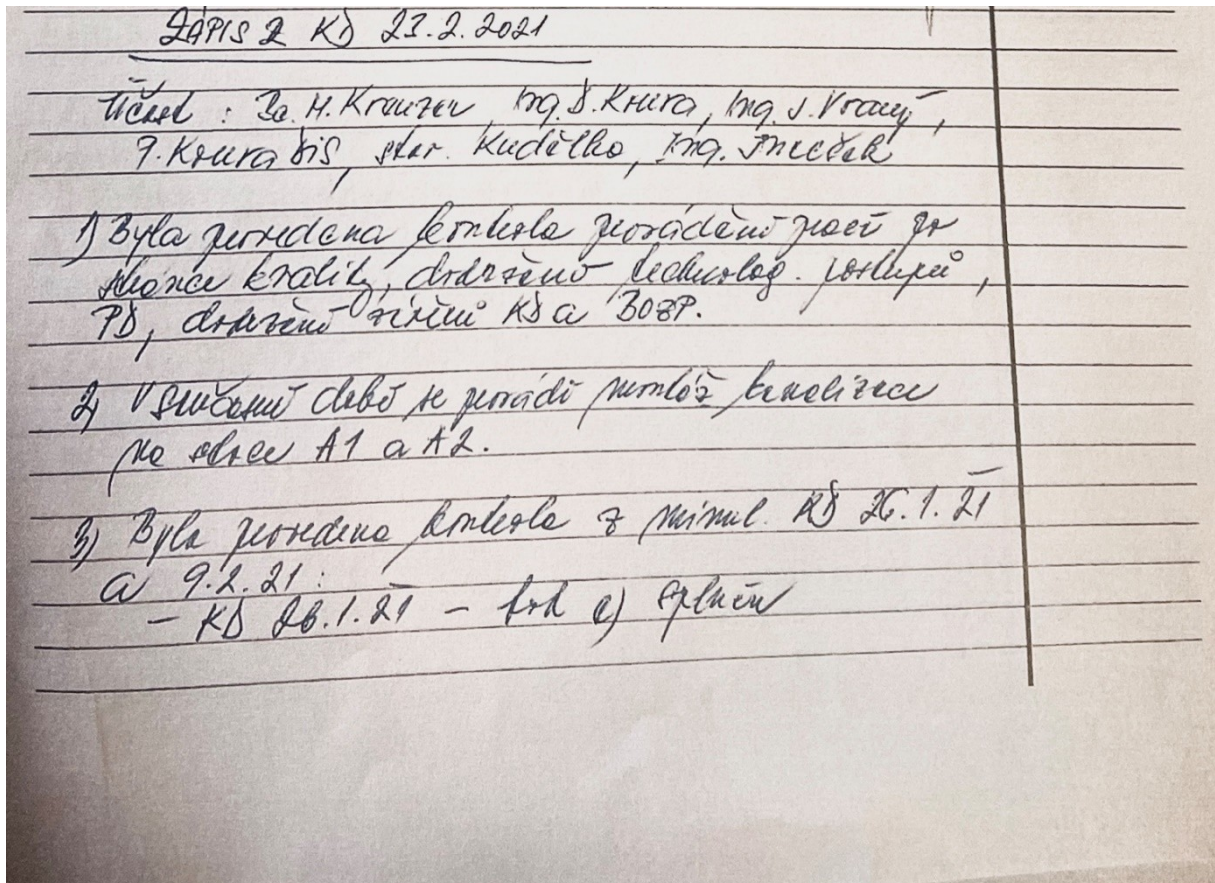 ZÁPIS Z KD 23.2.2021
Účast : Bc. H. Kreuzer, Ing. D. Koura, Ing. J. Vraný,
p. Koura DiS, star. Kudělka, Ing.
1) Byla provedena kontrola provádění prací po
stránce kvality, dodržení technolog. postupů,
PD, dodržení KD a BOZP.
2) V současné době se provádí montáž kanalizace
na stoce A1 a A2.
3) Byla provedena kontrola z minul. KD 26.1.21
a 9.2.21 :
- KD 26.1.21 - bod e) splněn